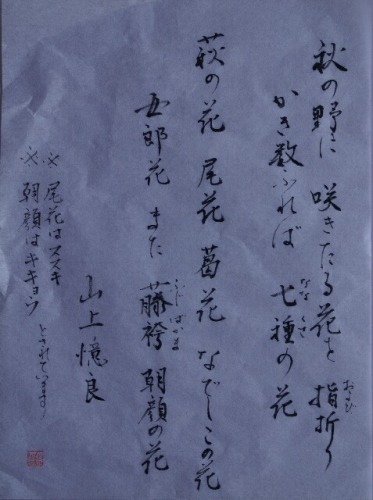 秋の野に 咲きたる花を 指折り
かき数ふれば 七種の花
萩の花 尾花 葛花 なでしこの花
女郎花 また 藤袴 朝顔の花
山上憶良
※ 尾花はススキ
※ 朝顔はキキョウ とされています